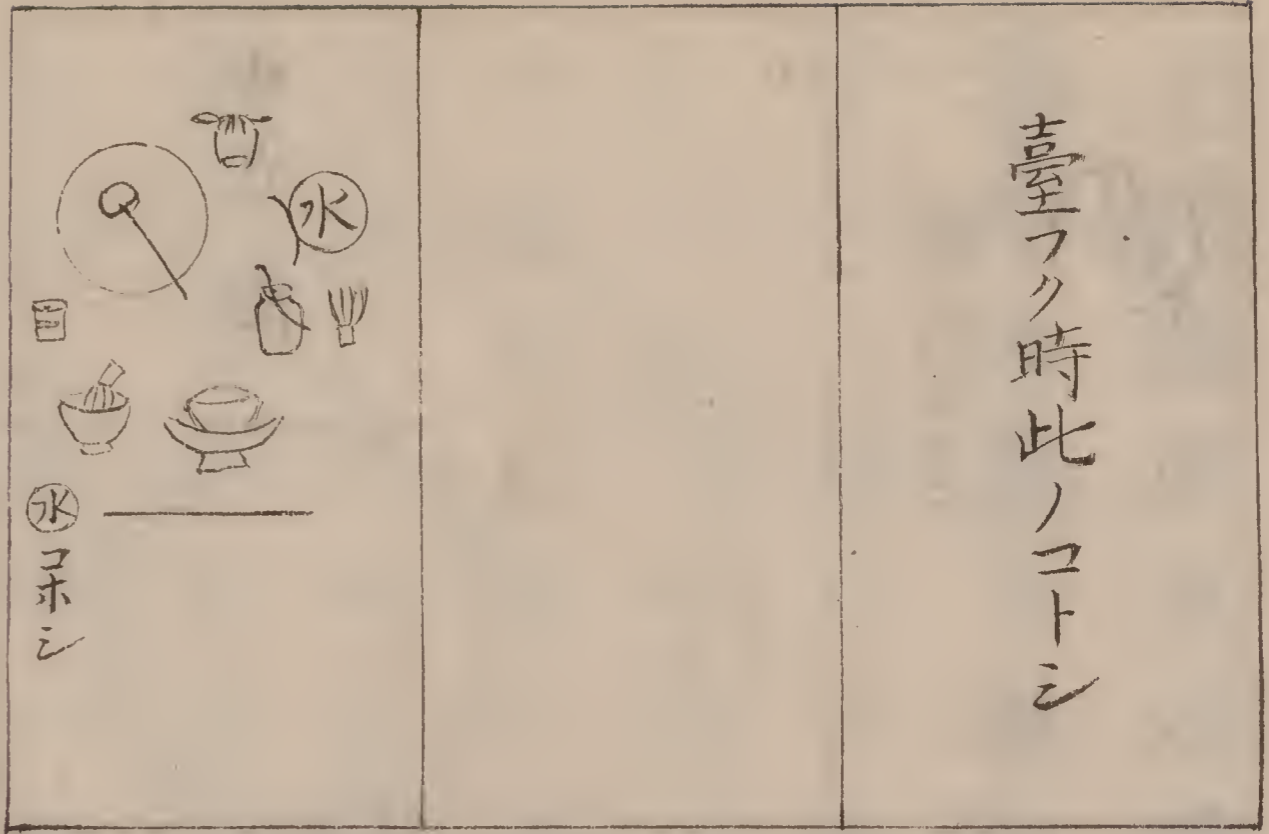 臺フク時此ノコトシ
水
水コホシ